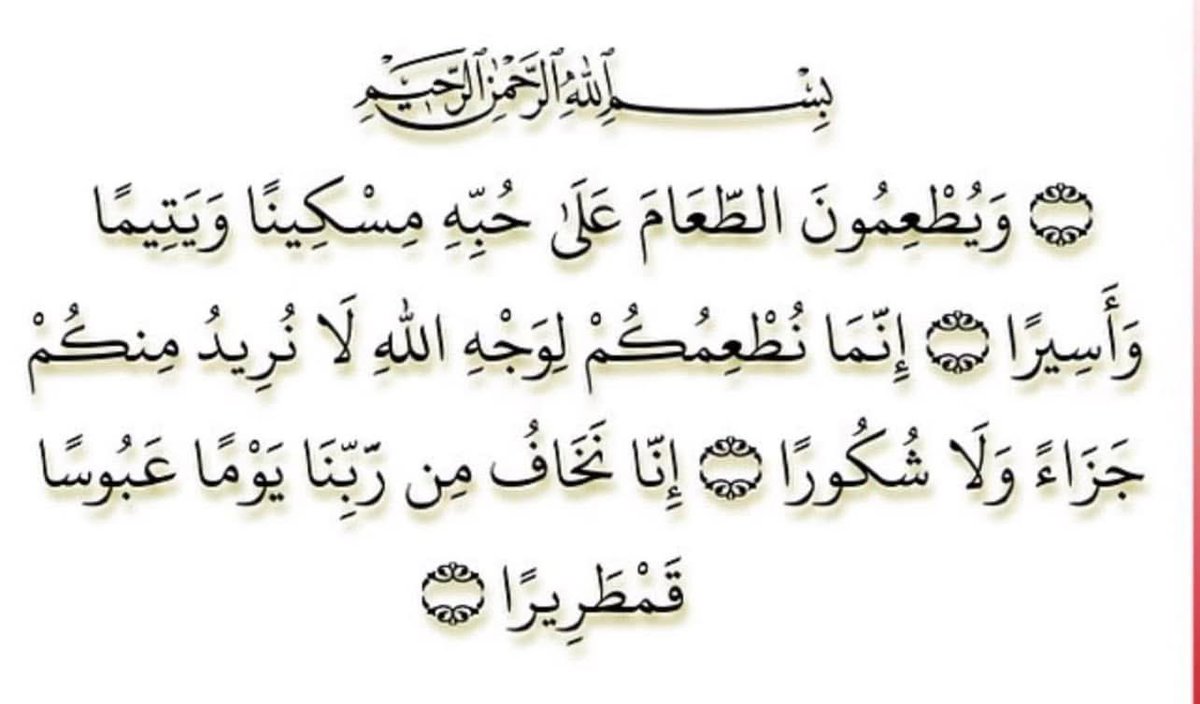 بِسْمِ ٱللَّهِ ٱلرَّحْمَٰنِ ٱلرَّحِيمِ
۝ وَيُطْعِمُونَ الطَّعَامَ عَلَىٰ حُبِّهِ مِسْكِينًا وَيَتِيمًا
وَأَسِيرًا ۝ إِنَّمَا نُطْعِمُكُمْ لِوَجْهِ اللَّهِ لَا نُرِيدُ مِنكُمْ
جَزَاءً وَلَا شُكُورًا ۝ إِنَّا نَخَافُ مِن رَّبِّنَا يَوْمًا عَبُوسًا
قَمْطَرِيرًا ۝